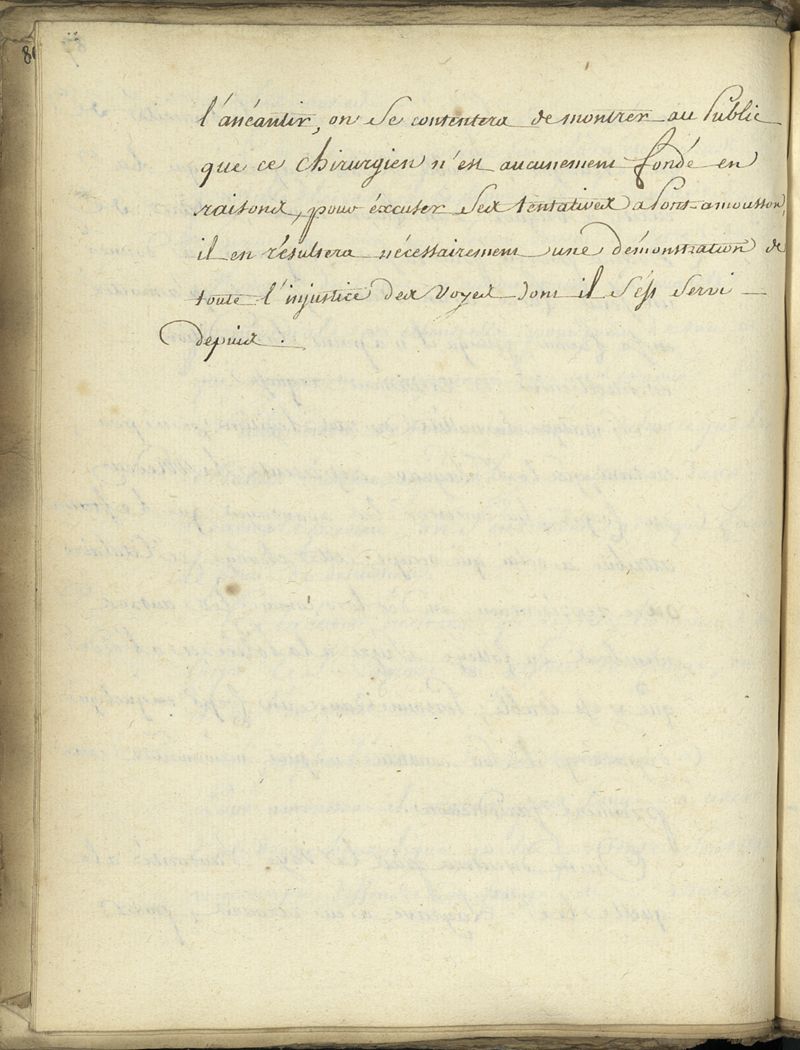 l'anéantir, on se contentera de montrer au Public
que ce chirurgien n'est aucunement fondé en
raisons, pour éxcuser ses tentatives a Pont-amousson,
il en résultera nécessairement une démonstration de
toute l'injustice des voyes dont il s'ést servi
depuis.